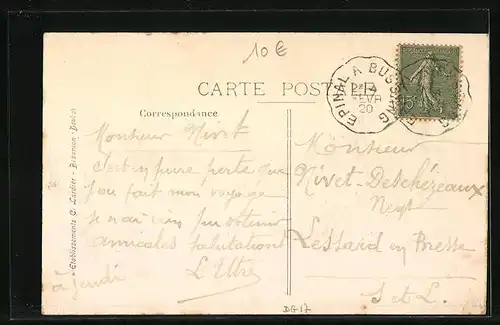 10 €
CARTE POSTALE
Correspondance
EPINAL A BUSSANG
FEVR
20
15
Monsieur Nivet
C'est en pure perte que
j'ai fait mon voyage
je n'ai rien pu obtenir
amicales salutations
à jeudi
Monsieur
Nivet-Deschézeaux
Negt
Lessard en Bresse
S et L.
Etablissements C. Lardier - Besançon (Doubs)
DG17